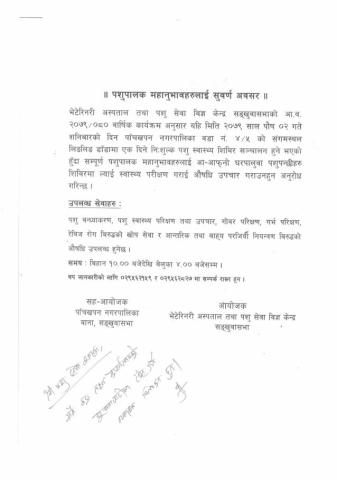 ॥ पशुपालक महानुभावहरुलाई सुवर्ण अवसर ॥
भेटेरिनरी अस्पताल तथा पशु सेवा विज्ञ केन्द्र सङ्खुवासभाको आ.व.
२०७९/०८० वार्षिक कार्यक्रम अनुसार यहि मिति २०७९ साल पौष ०२ गते
शनिवारको दिन पाँचखपन नगरपालिका वडा नं. ४/५ को संगमस्थल
लिङलिङ डाँडामा एक दिने निःशुल्क पशु स्वास्थ्य शिविर सञ्चालन हुने भएको
हुँदा सम्पूर्ण पशुपालक महानुभावहरुलाई आ-आफूनी घरपालुवा पशुपन्छीहरु
शिविरमा ल्याई स्वास्थ्य परीक्षण गराई औषधि उपचार गराउनहुन अनुरोध
गरिन्छ ।
उपलब्ध सेवाहरु :
पशु बन्ध्याकरण, पशु स्वास्थ्य परिक्षण तथा उपचार, गोबर परिक्षण, गर्भ परिक्षण,
रेविज रोग विरुद्धको खोप सेवा र आन्तरिक तथा बाह्य परजिवी नियन्त्रण विरुद्धको
औषधि उपलब्ध हुनेछ ।
समय : विहान १०.०० बजेदेखि बेलुका ४.०० बजेसम्म ।
थप जानकारीको लागि ०२९५६२१५९ र ०२९५६२८२७ मा सम्पर्क राख्न हुन ।
सह-आयोजक
पाँचखपन नगरपालिका
वाना, सङ्खुवासभा
आयोजक
भेटेरिनरी अस्पताल तथा पशु सेवा विज्ञ केन्द्र
सङ्खुवासभा